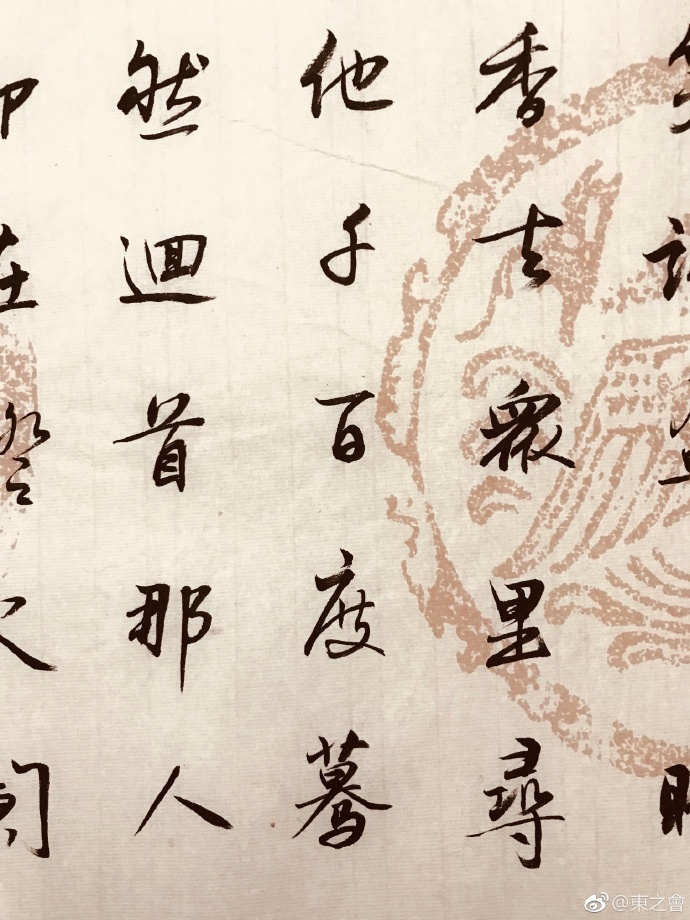 香去眾里尋
他千百度驀
然迴首那人
在火
@東之會